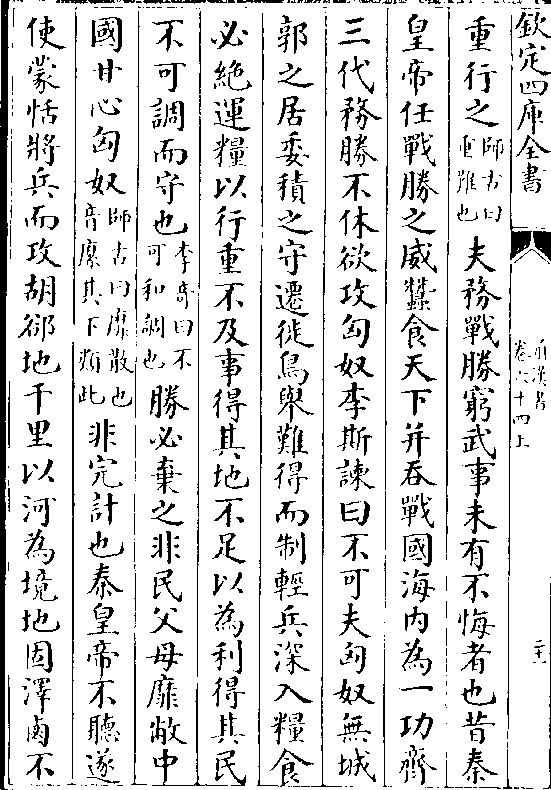 欽定四庫全書
前漢書
卷六十四上
重行之師古曰
重難也夫務戰勝窮武事未有不悔者也昔秦
皇帝任戰勝之威蠶食天下并吞戰國海内為一功齊
三代務勝不休欲攻匈奴李斯諫曰不可夫匈奴無城
郭之居委積之守遷徙鳥舉難得而制輕兵深入糧食
必絶運糧以行重不及事得其地不足以為利得其民
不可調而守也李竒曰不
可和調也勝必棄之非民父母靡敝中
國甘心匈奴師古曰靡散也
音糜其下類此非完計也秦皇帝不聽遂
使蒙恬將兵而攻胡郤地千里以河為境地固澤鹵不